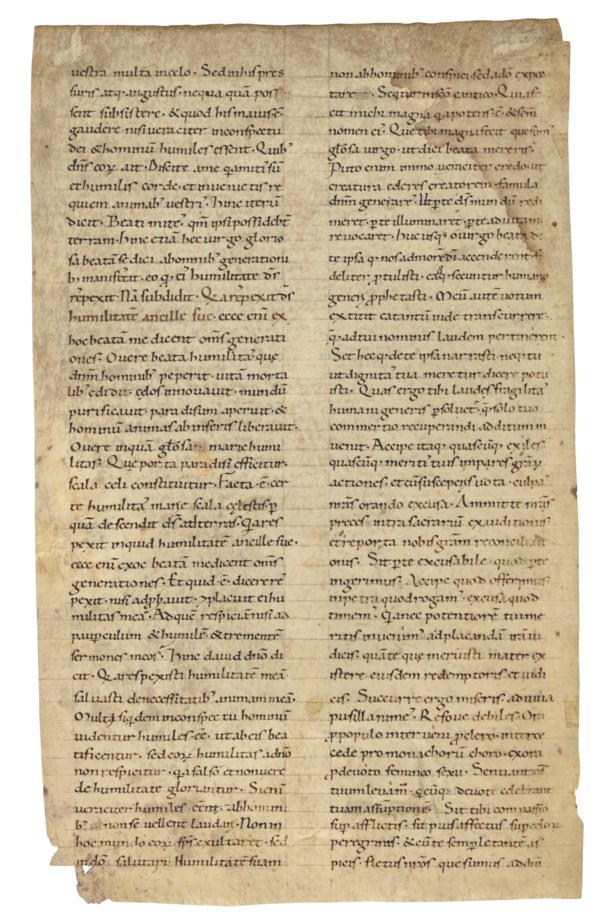 vestra multa in celo. Sed in his pres
suris atq; angustiis nequaquā pos
sent subsistere, & quod his maius ē
gaudere nisi veraciter in conspectu
dei & hominū humiles essent. Quib;
dn̄s ait. Discite a me q̄a mitis sū
et humilis corde. et invenietis re
quiem animab; vestris. Hinc iterū
dicit. Beati mites qm̄ ipsi possidebt̄
terram. Hinc etiā hec virgo glorio
sa beatā se dici ab omnib; generationi
b; manifestat. eo q̄ ei; humilitatē dn̄s
respexit. Nā subdidit. Q̄a respexit dn̄s
humilitatē ancille sue. ecce enī ex
hoc beatā me dicent om̄s generati
ones. O vere beata humilitas que
dn̄m hominib; peperit. vitā morta
lib; edidit. celos innovavit. mundū
purificavit. paradisum aperuit. &
hominū animas ab inferis liberavit.
O vere inquā gl̄osa marie humi
litas. Que porta paradisi efficitur.
scala celi constituitur. Facta ē cer
te humilitas marie scala celestis. p
quā descendit ds̄ ad terras. Q̄a res
pexit inquid humilitatē ancille sue.
ecce enī ex hoc beatā me dicent om̄s
generationes. Et quid ē dicere re
pexit. nisi adpbavit. placuit ei hu
militas mea. Ad quē respiciā nisi ad
paupculum & humilē & trementē
sermones meos. Hinc david dn̄o di
cit. Q̄a respexisti humilitatē meā.
salvasti de necessitatib; animam meā.
Multi siq̄dem in conspectu hominū
videntur humiles eē. ut ab eis bea
tificentur. sed eoꝝ humilitas a dn̄o
non respicitur. q̄a falso et non vere
de humilitate gloriantur. Si enī
veraciter humiles eēnt. ab homini
b; non se vellent laudari. Non in
hoc mundo eoꝝ sps̄ exultaret. sed
in dō salutari. Humilitatē suam
non ab hominib; conspici. sed a dō expec
tare. Seqtur in scō cantico. Quia fe
cit michi magna q̄ potens ē. & scm̄
nomen ei;. Que tibi magna fecit quesum;
gl̄osa virgo. ut dici beata mereris.
Puto enim immo veraciter credo. ut
creatura ederes creatorem. famula
dn̄m generares. Ut p te ds̄ mundū redi
meret. p te illuminaret. p te ad vitam
revocaret. Huc usq; o virgo beata de
te ipsa q̄ nos ad amorē di accenderent fi
deliter ptulisti. eaq; secuntur humano
generi pphetasti. Meū autē votum
extitit ea tantū inde transcurrere.
q̄ ad tui nominis laudem pertinerent.
Set hec q̄ de te ipsa narrasti. neq; tu
ut dignitas tua meretur. dicere potu
isti. Quas ergo tibi laudes fragilitas
humani generis psolvet. q̄ solo tuo
commertio recuperandi additum in
venit. Accipe itaq; quascūq; exiles
quascūq; meritis tuis impares grā
actiones. et cū suscepis vota. culpas
nr̄as orando excusa. Ammitte nr̄as
preces intra sacrariū exauditionis
et reporta nobis gram reconciliati
onis. Sit p te excusabile. quod p te
ingerimus. Accipe quod offerimus.
inpetra quod rogam;. excusa quod
timem;. Q̄a nec potentiorē tu me
ritis invenim; ad placandā irā iu
dicis. quā te que meruisti mater ex
istere eiusdem redemptoris et iudi
cis. Succurre ergo miseris. adiuva
pusillanimes. Refove debiles. Ora
p populo. interveni p clero. interce
cede pro monachorū choro. exora
p devoto femineo sexu. Sentiant om̄s
tuum levam̄. qcūq; devote celebrant
tuam assūptionē. Sit tibi compassio
sup afflictis. sit pius affectus supeioꝝ
peregrinis. & eūte semp letantes as
picis. Fletus nr̄os que sumus ad dn̄m